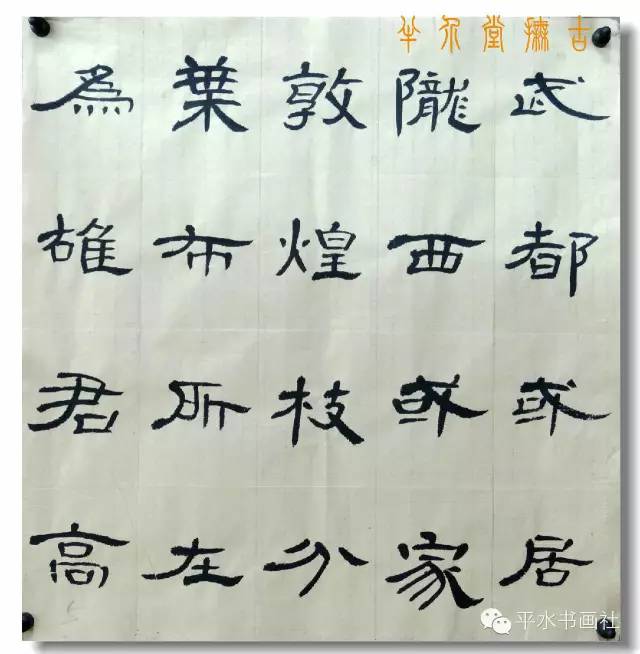 半堂古
武都或居
隴西或家
敦煌枝分
葉布所在
爲雄君高
平水书画社